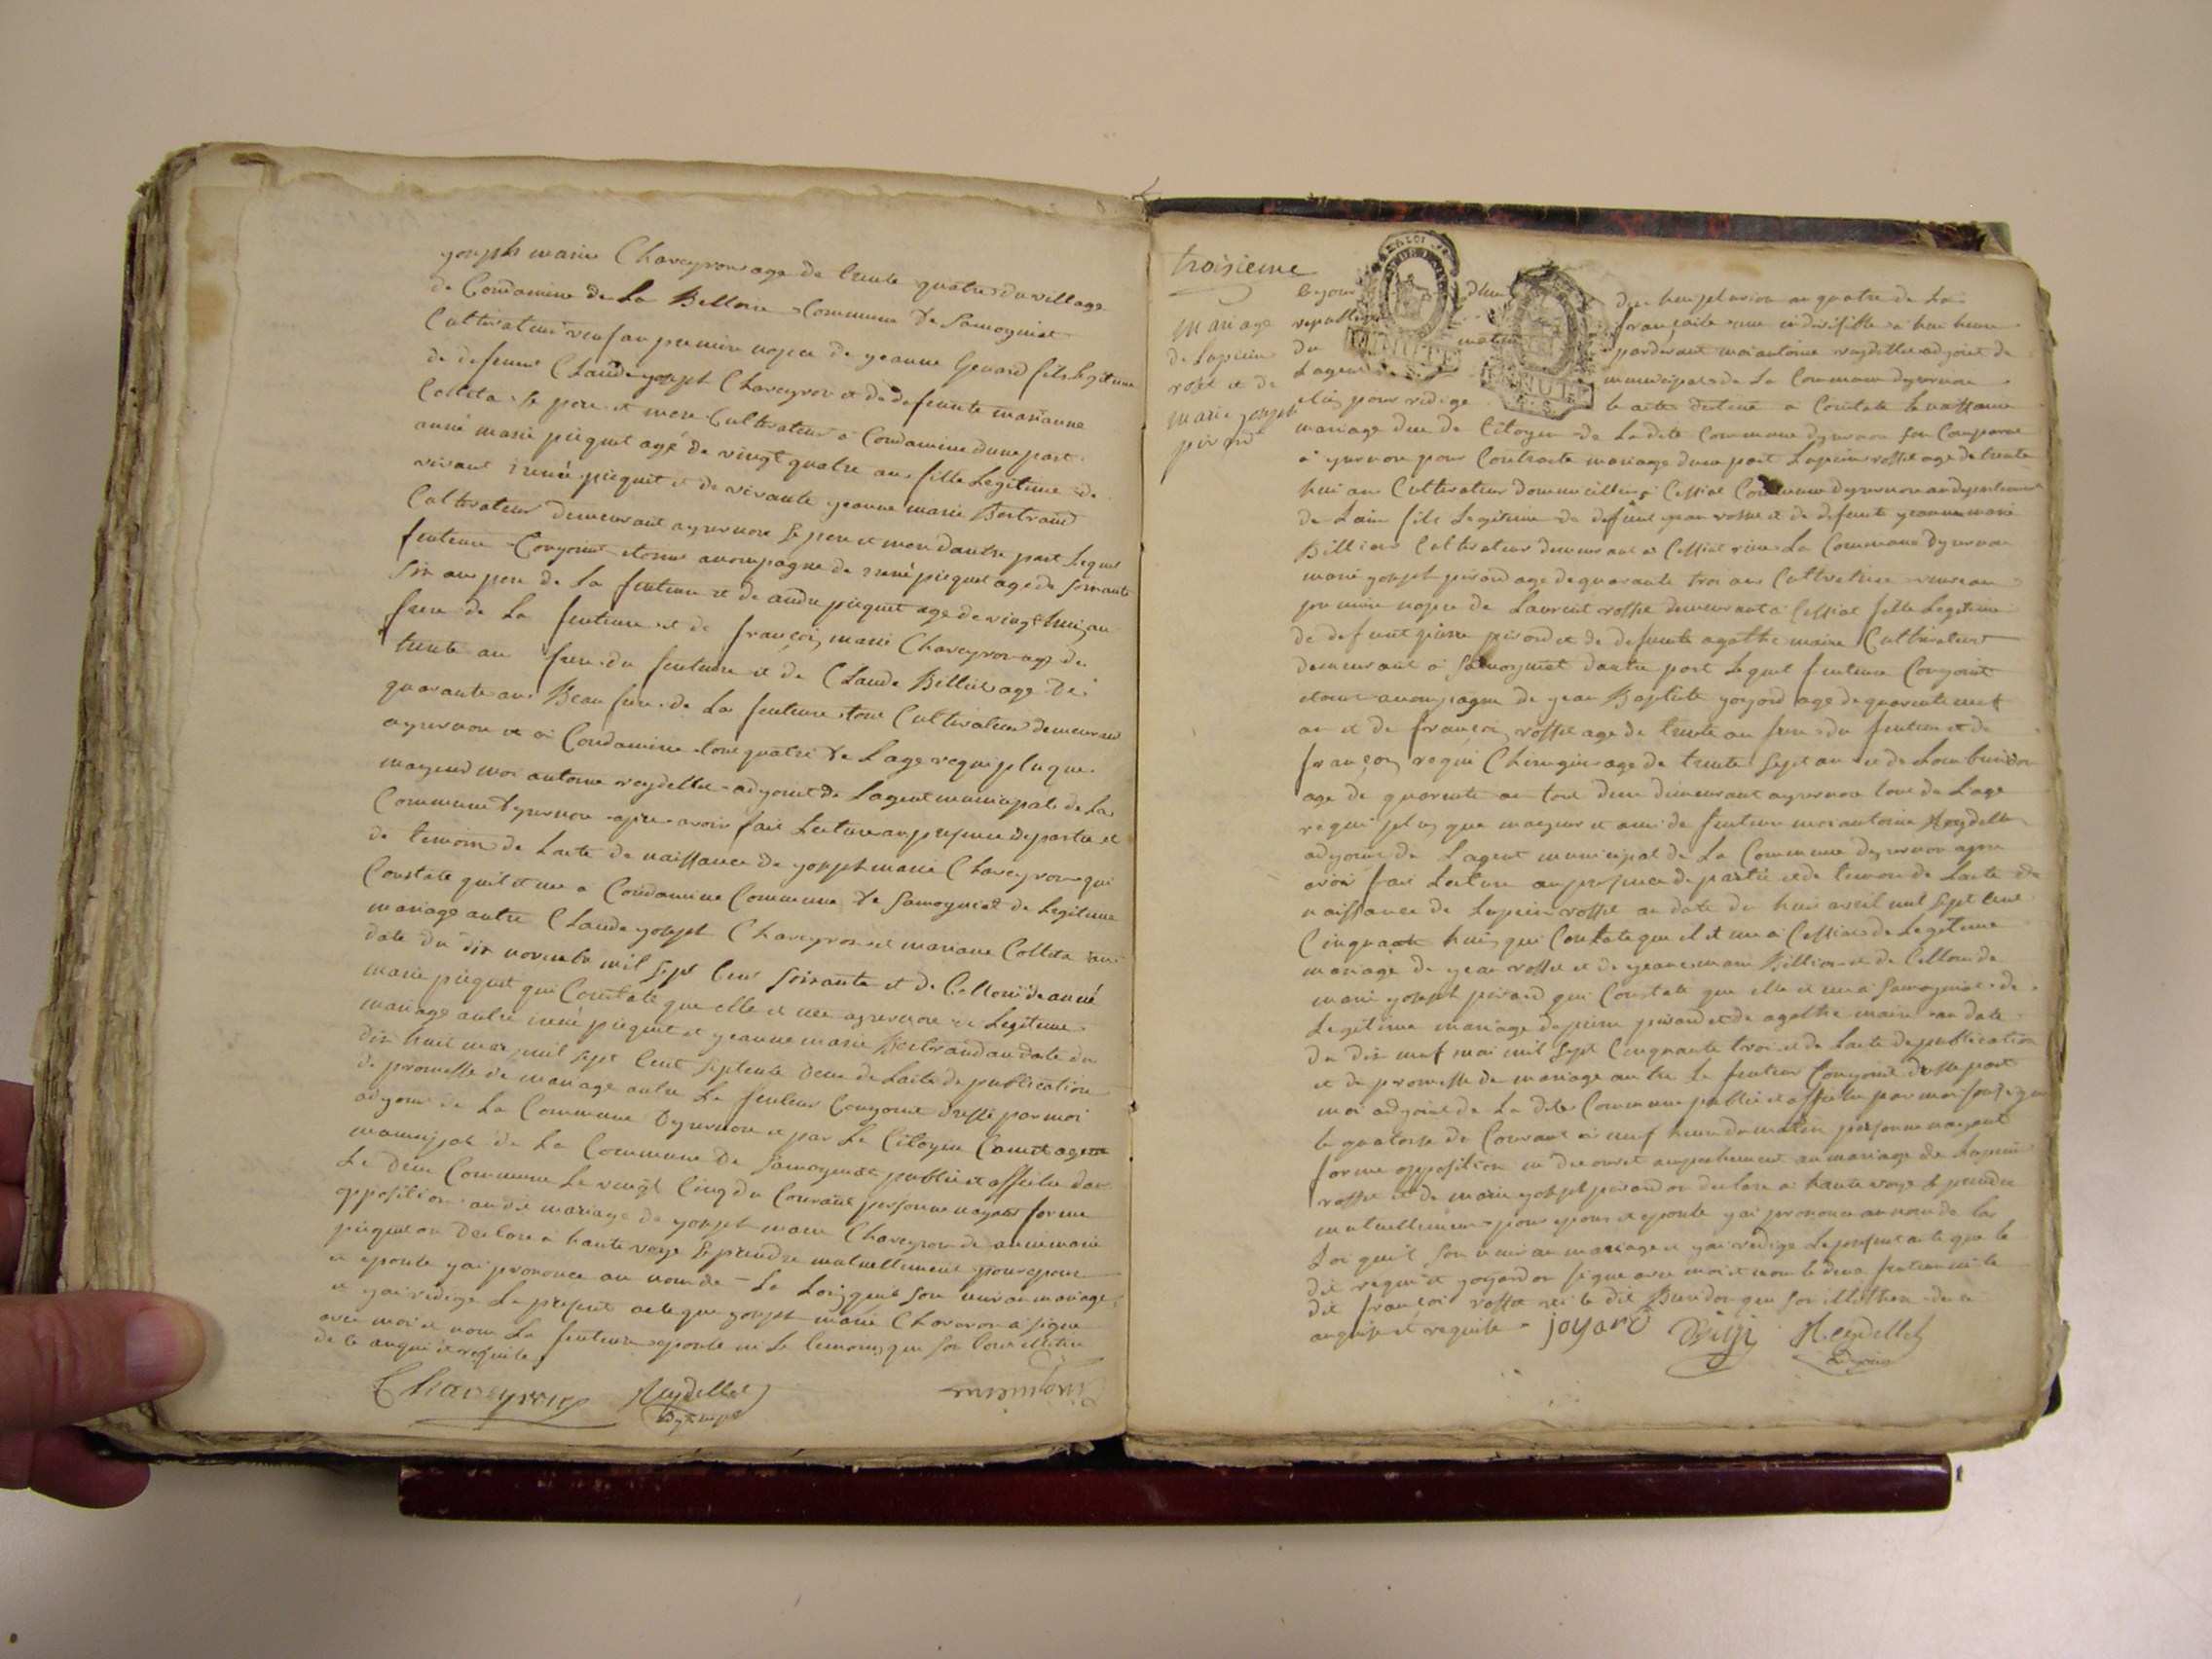 joseph marie Chaveyron age de trente quatre du village
de Condamine de La Belloire Commune de Samogniat
Cultivateur veuf au premier nopce de jeanne Genard fils legitime
de defeunt Claude joseph Chaveyron et de defeunte marianne
Colleta Se pere et mere Cultivateur a Condamine dune part
anne marie piequet agé de vingt quatre ans fille Legitime de
vivant rené piequet et de vivante jeanne marie Bertrand
Cultivateur demeurant ayzernore Se pere et mere dautre part Lequel
feuteur Conjoint etonne acompagne de rené piequet age de soixante
six ans pere de La feuteure et de andre piequet age de vingt huit an
frere de La feuteure et de françois marie Chaveyron age de
trente an frere du feuteure et de Claude Billiet age de
quarante ans Beau frere de La feuteure tous Cultivateur demeurant
ayzernore et a Condamine tous quatre de Lage requi plu que
mayeur moi antoine reydellet adjoint de Lagent municipale de La
Commune dyzernore apres avoir fait Lecture an presence de partie et
de temoins de Lacte de naissance de joseph marie Chaveyron qui
Constate quil et ne a Condamine Commune de Samogniat de Legitime
mariage autre Claude joseph Chaveyron et mariane Colleta
date du dix novembre mil sept Cent soixante et de Celloui de anne
marie piequet qui Constate que elle et nee ayzernore de Legitime
mariage autre rené piequet et jeanne marie Bertrand an date du
dix huit mai mil sept Cent septente deux de Lacte de publication
de promesse de mariage autre Le feuteur Conjoint dresse par moi
adjoint de La Commune dyzernore et par Le Citoyen Comet agent
municipal de La Commune De Samogniat publie et affiche dan
Le deux Commune Le vingt Cinq du Courant personne nayant forme
opposition audit mariage de joseph marie Chaveyron de anne marie
piequet on Declare a haute voye Se prendre mutuellement pour epoux
et epoute jai prononce au nom de La Loi quil son uni an mariage
et jai redige Le present acte que joseph marie Chaveron a signe
avec moi et non La feuteure epoute ni Le temoins que son tous illitere
de ce anqui et requite
Chaveyron Reydellet
troisieme
mariage
de Lupicin
rosset et de
marie joseph
pirard
Cejour dhui
republique française une et indivisible a huit heure
du matin pardevant moi antoine reydellet adjoint de
Lagent municipale de La Commune dyzernore
elu pour redige le acte destine a Constate Le naissance
mariage due de Citoyen de Ladite Commune dyzernore son Comparut
a yzernore pour Contracte mariage dune part Lupicin rosset age de trente
huit ans Cultivateur domicillier a Cessiat Commune dyzernore an departement
de Lain fils Legitime de defeunt jean rosset et de defeunte jeanne marie
Billion Cultivateur demeurant a Cessiat riere La Commune dyzernore
marie joseph pirard age de quarante trois ans Cultivatrice veuve au
premier nopce de Laurent rosset demeurant a Cessiat fille Legitime
de defeunt pierre pirard et de defeunte agathe maire Cultivateur
demeurant a Samogniat dautre part Lequel feuteur Conjoint
etonne acompagne de jean Baptiste joyard age de quarente neuf
an et de françois rosset age de trente an frere du feuteur et de
françois regui Chirugien age de trente sept an et de Loui buridon
age de quarente an tous deux demeurant ayzernore tous de Lage
requi plus que mayeur et ami de feuteur moi antoine Reydellet
adjoint de Lagent municipal de La Commune dyzernore apres
avoir fait Lecture an presence de partie et de temoin de Lacte de
naissance de Lupicin rosset an date du huit avril mil sept Cent
Cinquante huit qui Constate que il et ne a Cessiat de Legitime
mariage de jean rosset et de jeanne marie Billion et de Celloui de
marie joseph pirard qui Constate que elle et nee a Samogniat de
Legitime mariage de pierre pirard et de agathe maire an date
du dix neuf mai mil sept Cinquante trois et de Lacte de publication
et de promesse de mariage autre Le feuteur Conjoint dresse par
moi adjoint de La dite Commune publie et affiche par moi
le quatorse du Courant a neuf heure du matin personne nayant
forme opposition ni anpechement au mariage de Lupicin
rosset et de marie joseph pirard on declare a haute voye Se prendre
mutuellement pour epoux et epoute jai prononce au nom de La
Loi quil son uni an mariage et jai redige Le present acte que le
dit regui et joyard on signe avec moi et non le deux feuteur ni le
dit françois rosset ni le dit Buridon que son illithere de ce
anquis et requite joyard Regui Reydellet
adjoint